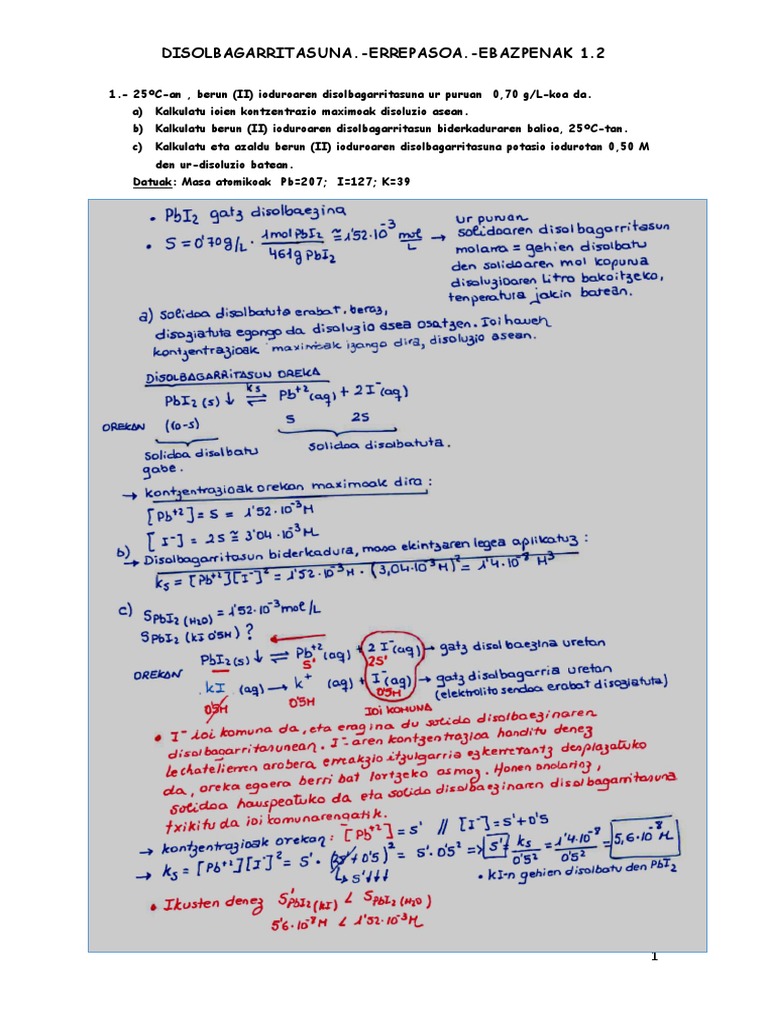 DISOLBAGARRITASUNA.-ERREPASOA.-EBAZPENAK 1.2
1.- 25ºC-an , berun (II) ioduroaren disolbagarritasuna ur puruan 0,70 g/L-koa da.
a) Kalkulatu ioien kontzentrazio maximoak disoluzio asean.
b) Kalkulatu berun (II) ioduroaren disolbagarritasun biderkaduraren balioa, 25ºC-tan.
c) Kalkulatu eta azaldu berun (II) ioduroaren disolbagarritasuna potasio iodurotan 0,50 M
den ur-disoluzio batean.
Datuak: Masa atomikoak Pb=207; I=127; K=39
• PbI2 gatz disolbaezina
• S = 0'70 g/L · 1mol PbI2 / 461g PbI2 ≅ 1'52·10^-3 mol/L →
ur puruan
solidoaren disolbagarritasun
molarra = gehien disolbatu
den solidoaren mol kopurua
disoluzioaren litro bakoitzeko,
tenperatura jakin batean.
a) solidoa disolbatuta erabat. beraz,
disoziatuta egongo da disoluzio asea osatzen. Ioi hauen
kontzentrazioak maximoak izango dira, disoluzio asean.
DISOLBAGARRITASUN OREKA
PbI2 (s) ↓ ks ⇌ Pb+2 (aq) + 2 I- (aq)
OREKAN (10-s) s 2s
solidoa disolbatu gabe. solidoa disolbatuta.
→ kontzentrazioak orekan maximoak dira :
[Pb+2] = s = 1'52·10^-3 M
[I-] = 2s ≅ 3'04·10^-3 M
b) → Disolbagarritasun biderkadura, masa ekintzaren legea aplikatuz :
ks = [Pb+2][I-]^2 = 1'52·10^-3 M · (3,04·10^-3 M)^2 = 1'4·10^-8 M^3
c) S PbI2 (H2O) = 1'52·10^-3 mol/L
S PbI2 (kI 0'5M) ?
PbI2(s) ↓ ⇌ Pb+2 (aq) + 2 I- (aq) → gatz disolbaezina uretan
OREKAN s' 2s'
kI (aq) → k+ (aq) + I- (aq) → gatz disolbagarria uretan
0'5M 0'5M 0'5M (elektrolito sendoa erabat disoziatuta)
IOI KOMUNA
• I- ioi komuna da, eta eragina du solido disolbaezinaren
disolbagarritasunean. I- aren kontzentrazioa handitu denez
lechatelierren arabera erreakzio itzulgarria ezkerrerantz desplazatuko
da, oreka egoera berri bat lortzeko asmoz. Honen ondorioz,
solidoa hauspeatuko da eta solido disolbaezinaren disolbagarritasuna
txikitu da ioi komunarengatik.
→ kontzentrazioak orekan : [Pb+2] = s' // [I-] = s' + 0'5
→ ks = [Pb+2][I-]^2 = s' · (2s' + 0'5)^2 = s' · 0'5^2 => s' = ks / 0'5^2 = 1'4·10^-8 / 0'5^2 = 5,6·10^-8 M
↳ s' ↓↓↓
• kI-n gehien disolbatu den PbI2
• Ikusten denez S' PbI2 (kI) < S PbI2 (H2O)
5'6·10^-8 M < 1'52·10^-3 M
1